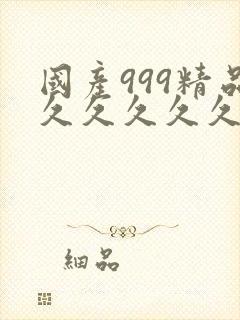 國產999精品
久久久久久
細品